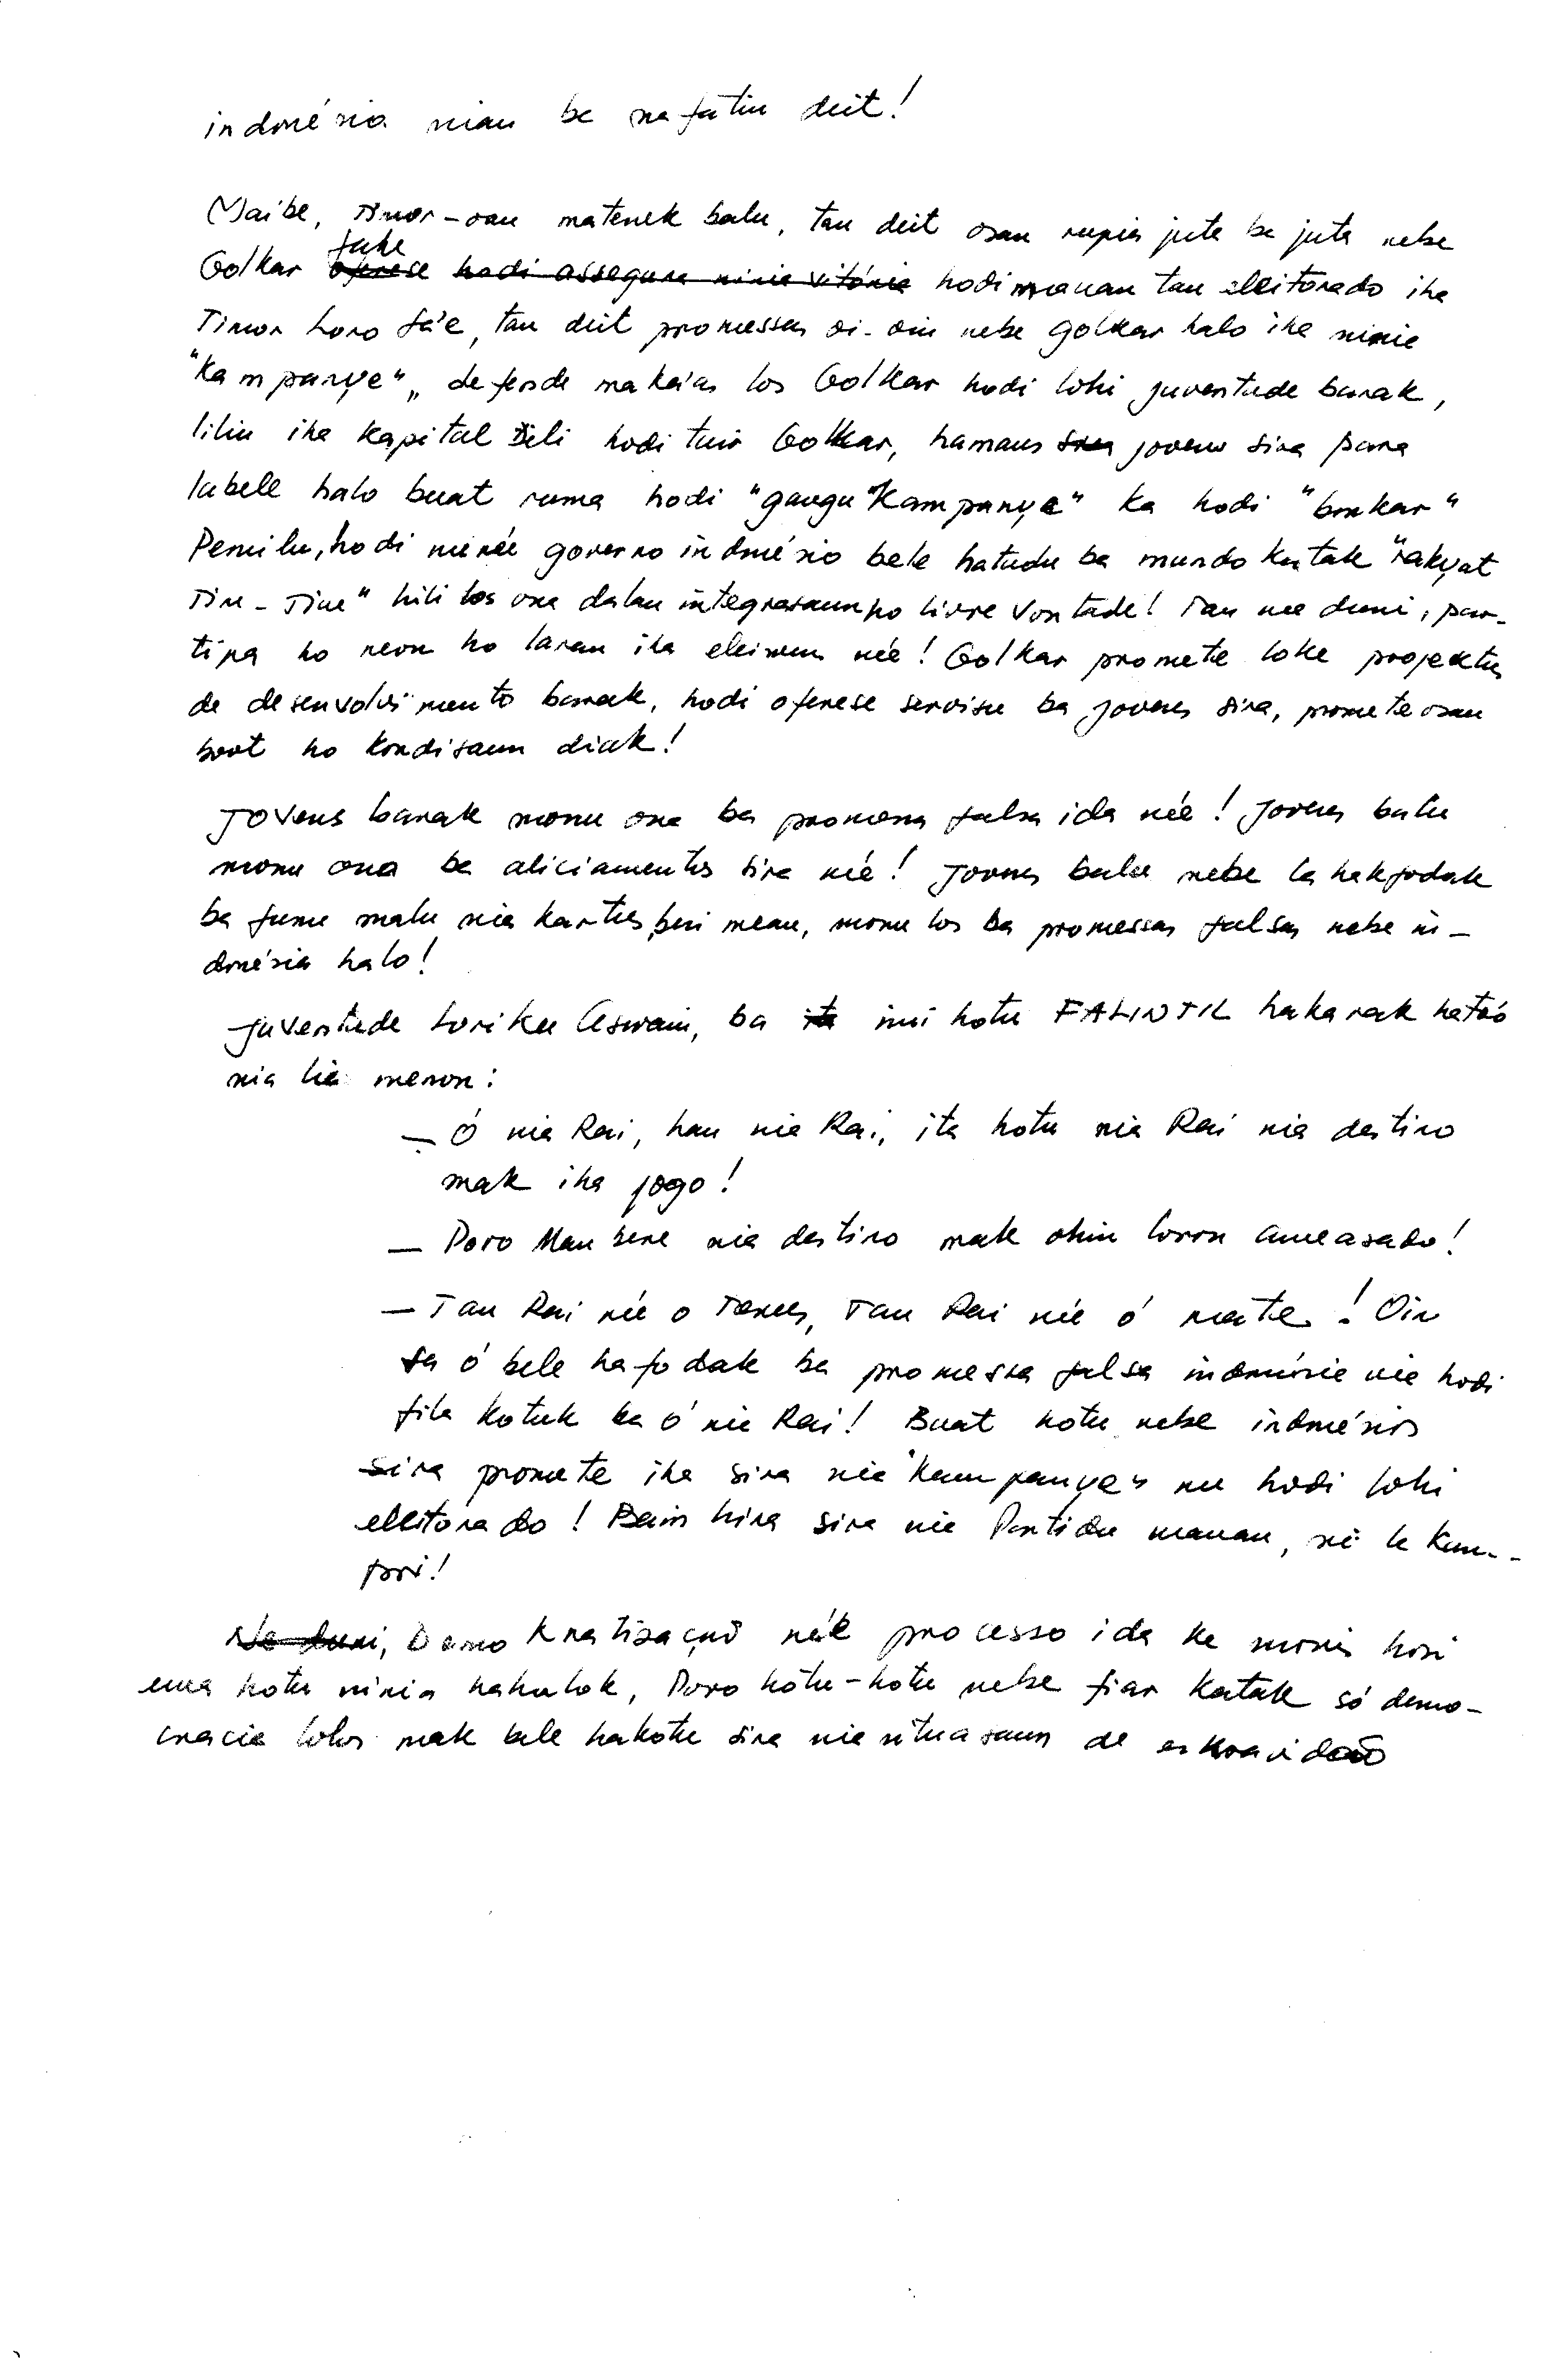 indonésia nian ba nafatin deit!
Maibe, Timor-oan matenek balu, tan deit osan rupia juta ba juta nebe
fahe
Golkar oferese hodi assegura ninia vitória hodi manan tan eleitorado iha
Timor Loro Sa'e, tan deit promessas oi-oin nebe golkar halo iha ninia
"Kampanye", defende maka'as los Golkar hodi lohi juventude barak,
liliu iha kapital Dili hodi tuir Golkar, hamaus sira jovens sira para
labele halo buat ruma hodi "gangu Kampanye" ka hodi "bonkar"
Pemilu, hodi nune'e governo indonésio bele hatudu ba mundo katak "rakyat
Tim-Tim" hili los ona dalan integrasaun ho livre vontade! Tan nee duni, par-
tipa ho neon ho laran iha eleisaun née! Golkar promete loke projektus
de desenvolvimento barak, hodi oferese servisu ba jovens sira, promete osan
boot ho kondisaun diak!
Jovens barak monu ona ba promessa falsa ida née! Jovens balu
monu ona ba aliciamentos sira née! Jovens balu nebe la hakfodak
ba funu malu nia kartus, ben mean, monu los ba promessas falsas nebe in-
donésia halo!
Juventude Loriku Aswain, ba ita imi hotu FALINTIL hakarak ható'o
nia lia menon:
— Ó nia Rai, hau nia Rai, ita hotu nia Rai nia destino
mak iha jogo!
— Povo Maubere nia destino mak ohin loron ameasado!
— Tan Rai née o terus, Tan Rai née ó mate! Oin
sa ó bele hafodak ba promessa falsa indonésia nia hodi
fila kotuk ba ó nia Rai! Buat hotu nebe indonésios
sira promete iha sira nia "Kampanye" nu hodi lohi
eleitorado! Bain hira sira nia Partidu manan, sei la kum-
pri!
Ne duni, Demokratização né'e processo ida ke moris hosi
ema hotu ninia hahalok, Povo hotu-hotu nebe fiar katak só demo-
cracia lolos mak bele hakotu sira nia situasaun de eskravidão